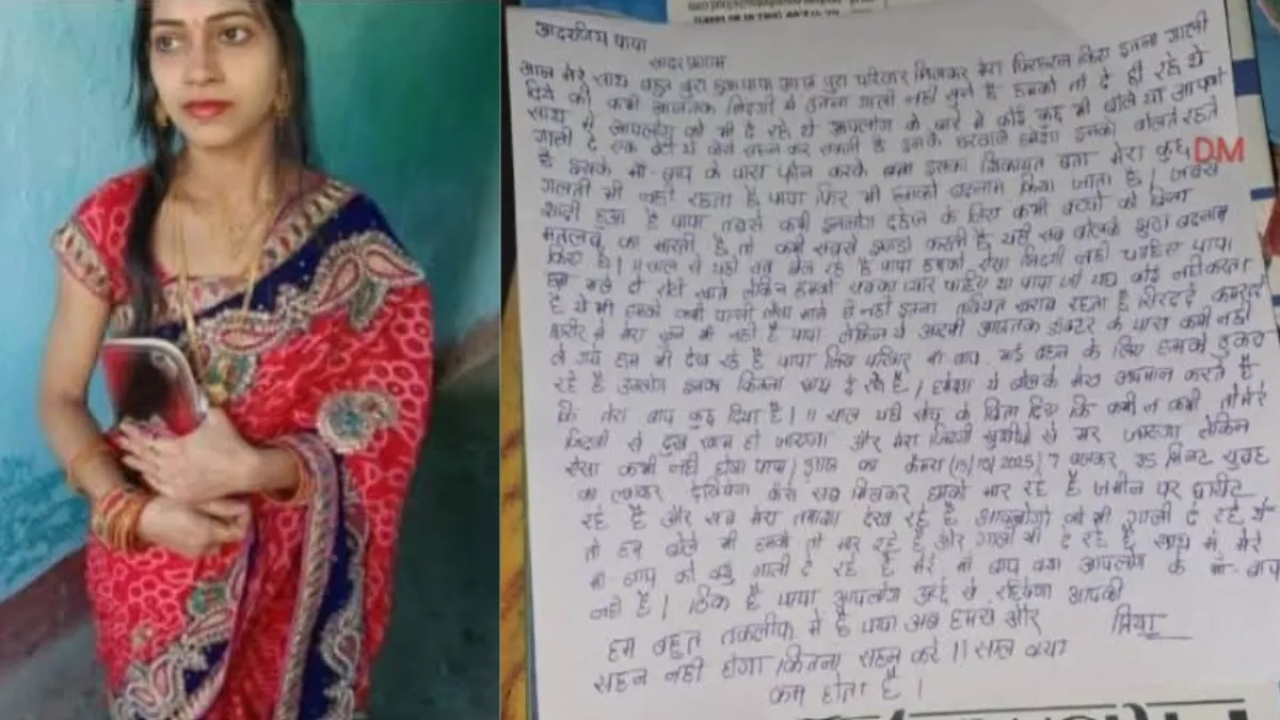 आदरणिय पापा
सादर प्रणाम
आज मेरे साथ बहुत बुरा हुआ पापा आज पुरा परिवार मिलकर मेरा किए इतना गाली
दिये की कभी आजतक जिंदगी में इतना गाली नहीं सुने है हमको तो दे ही रहे थे
साथ में आपलोग को भी दे रहे थे आपलोग के बारे में कोई कुछ भी बोले या आपको
गाली दे एक बेटी ये कैसे सहन कर सकती है इनके घरवाले हमेशा इनको बोलते रहते
है इसके माँ-बाप के पास फोन करके बता इसका शिकायत बता मेरा कुछ DM
गलती भी नहीं रहता है पापा फिर भी हमको बदनाम किया जाता है। जबसे
शादी हुआ है पापा तबसे कभी इनलोग दहेज के लिए कभी बच्चो को बिना
मतलब का मारती है, तो कभी सबसे झगड़ा करती है यही सब बोलके झूठा बदनाम
किए है। 11 साल से यही सब झेल रहे है पापा हमको ऐसा जिंदगी नहीं चाहिए पापा
हम भले दो रोटी खाते लेकिन हमको सबका प्यार चाहिए था पापा जो यहाँ कोई नहीं करता
है ये भी हमको कभी पत्नी जैसा माने ही नहीं इतना तबियत खराब रहता है सिरदर्द कमरदर्द
शरीर में मेरा खून भी नहीं है पापा लेकिन ये आदमी आजतक डॉक्टर के पास कभी नहीं
ले गये हम भी देख रहे है पापा जिस परिवार माँ बाप भाई बहन के लिए हमको ठुकरा
रहे है उनलोग इनका कितना साथ दे रहे है। हमेशा ये बोलके मेरा अपमान करते है
कि तेरा बाप कुछ दिया है। 11 साल यही सोच के बिता दिए कि कभी न कभी तो मेरे
जिंदगी से दुख खत्म हो जाएगा और मेरा जिंदगी खुशियों से भर जाएगा लेकिन
ऐसा कभी नहीं होगा पापा। आज का कैमरा (15/10/2025) 7 बजकर 35 मिनट सुबह
का निकालकर देखियेगा कैसे सब मिलकर हमको मार रहे है जमीन पर घसीट
रहे है और सब मेरा तमाशा देख रहे है आपलोगो को भी गाली दे रहे थे
तो हम बोले भी हमको तो मार रहे है और गाली भी दे रहे है साथ में मेरे
माँ बाप को क्यु गाली दे रहे है मेरे माँ बाप क्या आपलोग के माँ-बाप
नहीं है। ठिक है पापा आपलोग अच्छे से रहियेगा आपकी
हम बहुत तकलीफ में है पापा अब हमसे और प्रिया
सहन नहीं होगा कितना सहन करे 11 साल क्या
कम होता है।